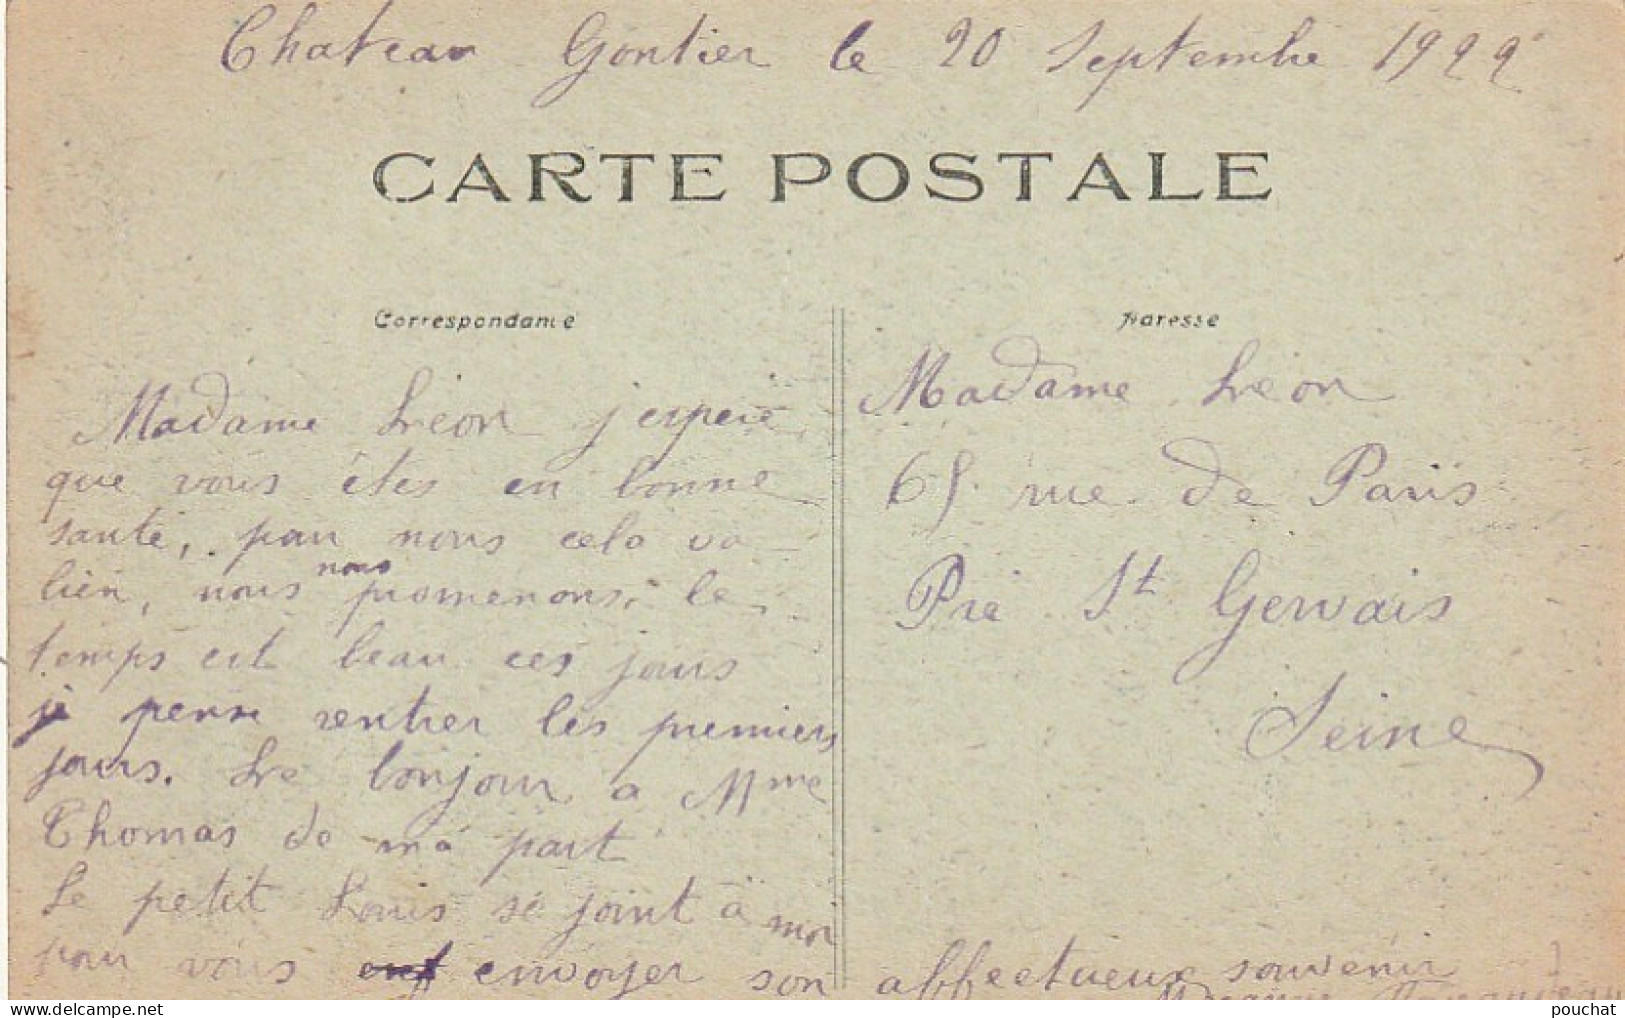 Chateau Gontier le 20 Septembre 1922
CARTE POSTALE
Correspondance
Adresse
Madame Léon j'espère
que vous êtes en bonne
santé, pour nous cela va
bien, nous nous promenons, le
temps est beau ces jours
je pense rentrer les premiers
jours. Le bonjour a Mme
Thomas de ma part
Le petit Louis se joint à moi
pour vous envoyer son affectueux souvenir
Madame Léon
65 rue de Paris
Pré St Gervais
Seine
delcampe.net
pouchat